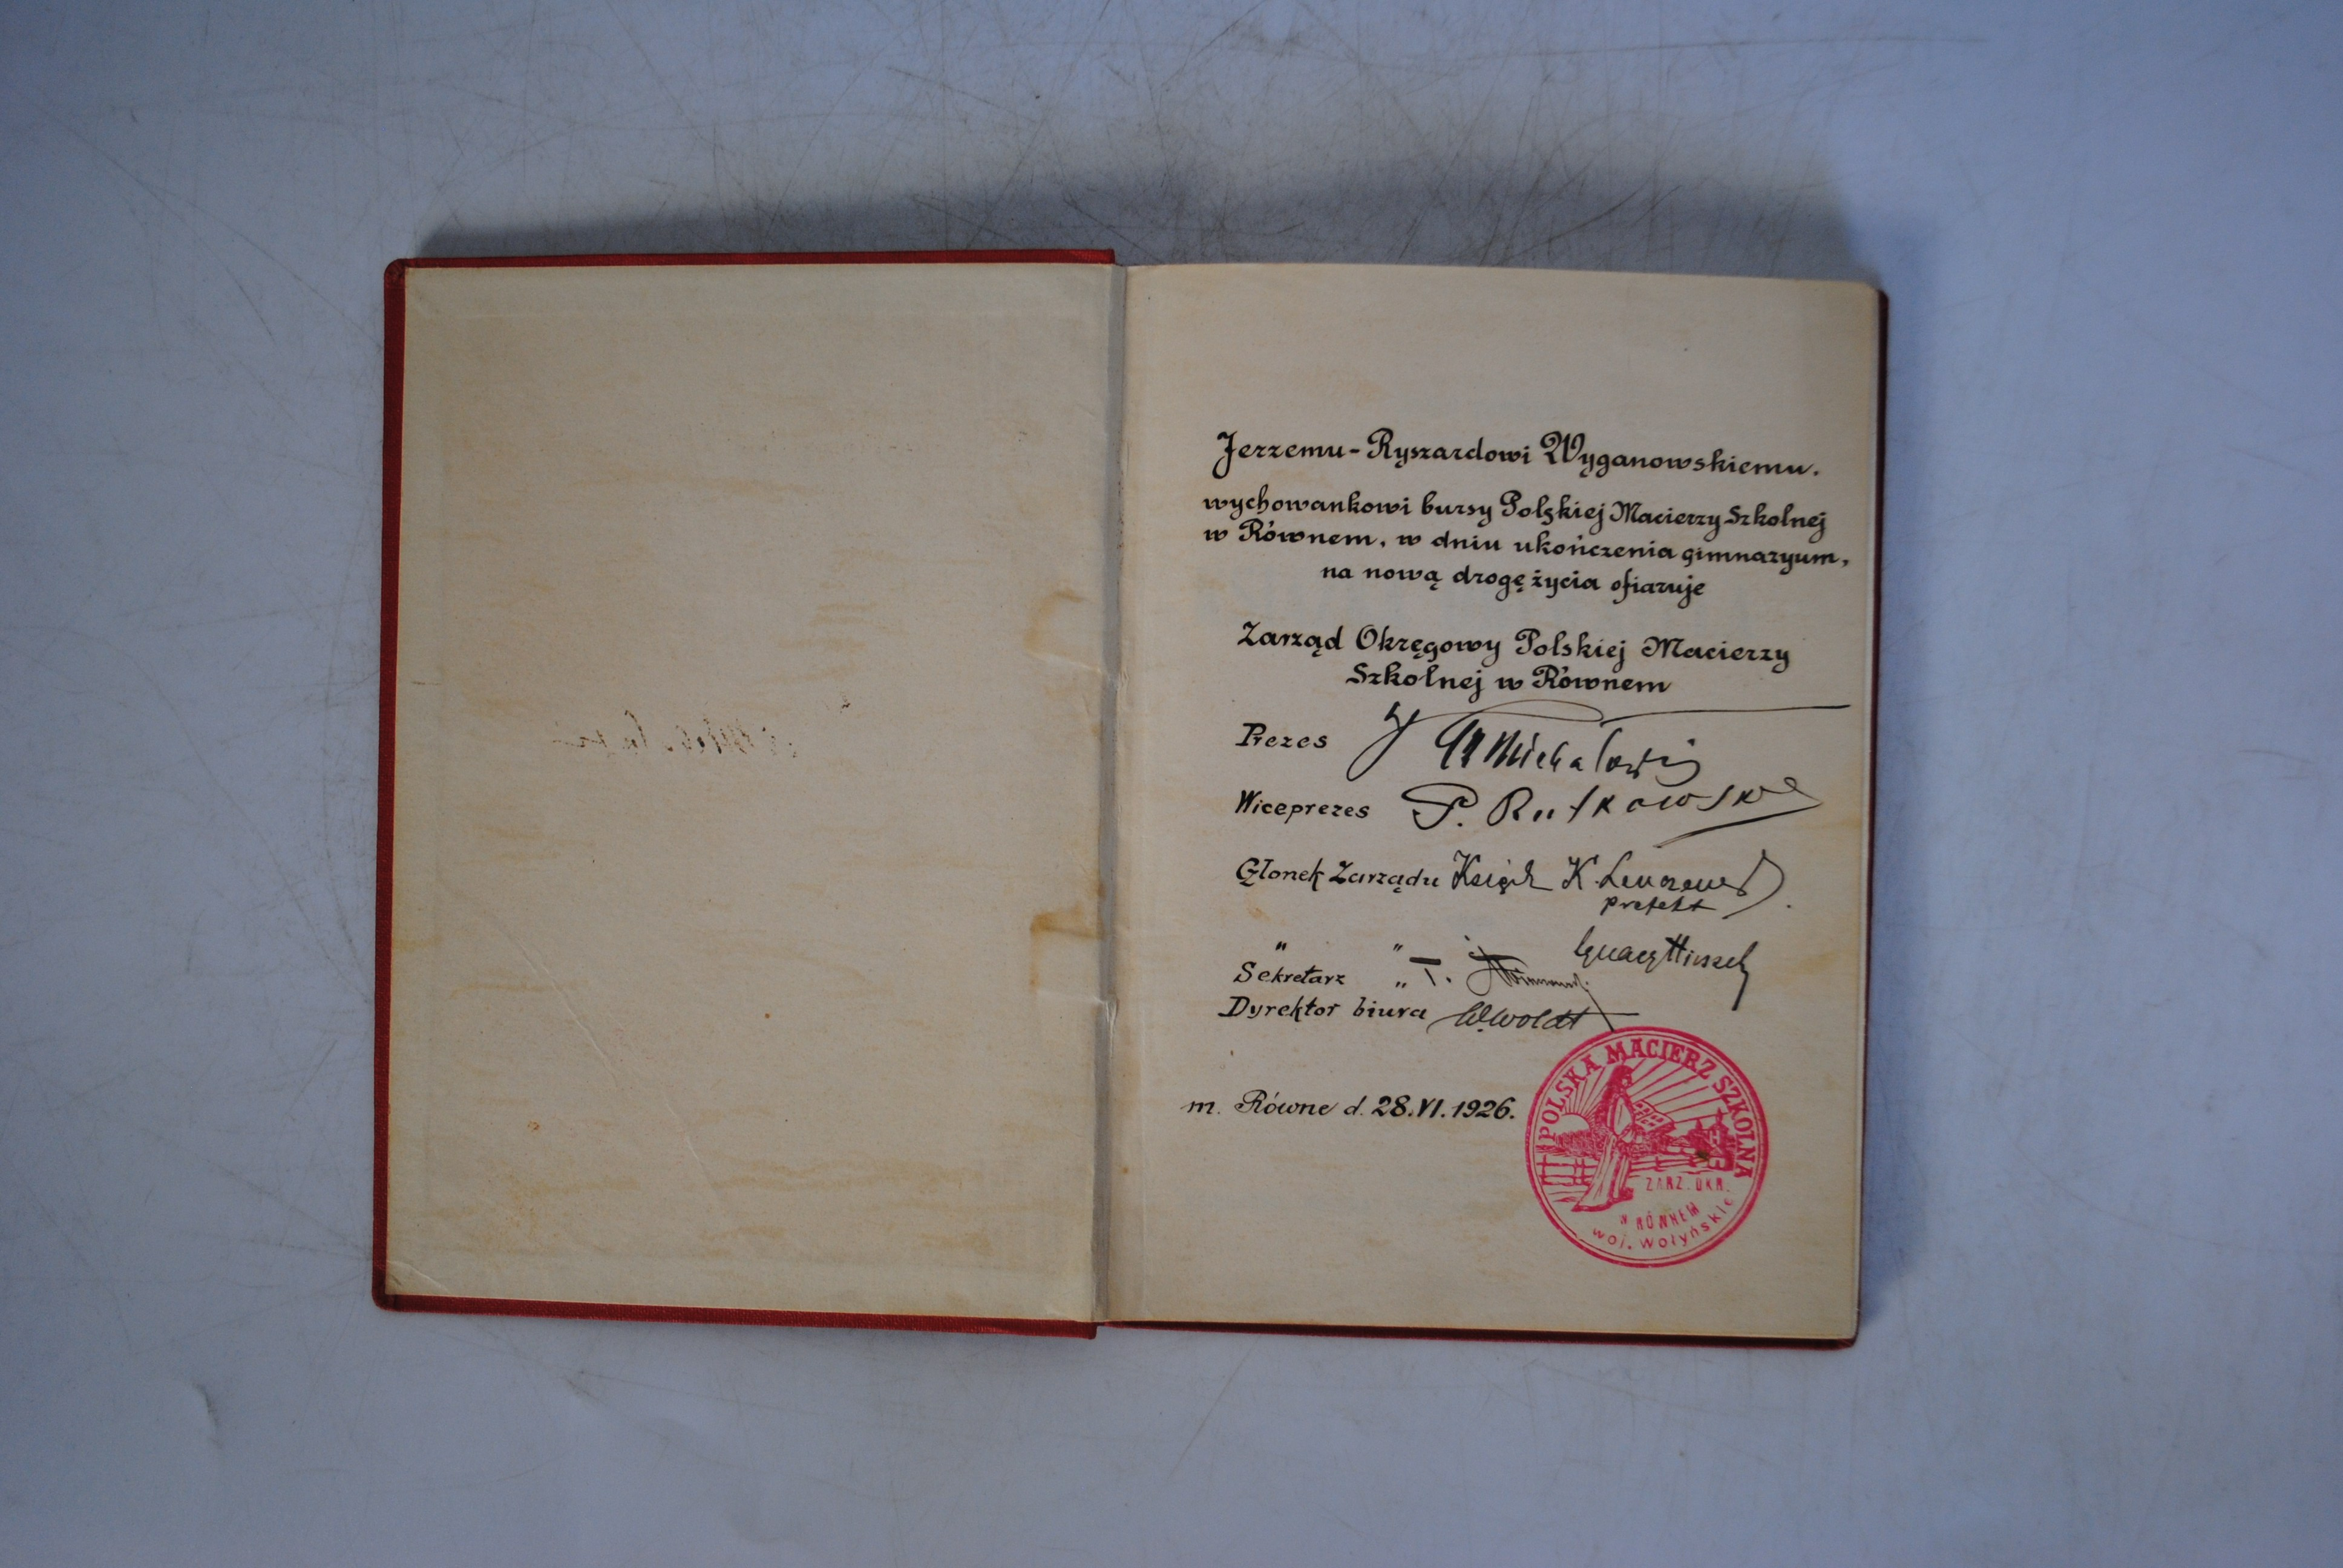 Jerzemu-Ryszardowi Wyganowskiemu.
wychowankowi bursy Polskiej Macierzy Szkolnej
w Równem, w dniu ukończenia gimnazyum,
na nową drogę życia ofiaruje
Zarząd Okręgowy Polskiej Macierzy
Szkolnej w Równem
Prezes
Wiceprezes P. Rutkowski
Członek Zarządu Ksiądz K.
prefekt
" " Ignacy
Sekretarz " T.
Dyrektor biura W. Woldt
m. Równe d. 28.VI.1926.
POLSKA MACIERZ SZKOLNA
ZARZ. OKR.
W RÓWNEM
woj. Wołyńskie